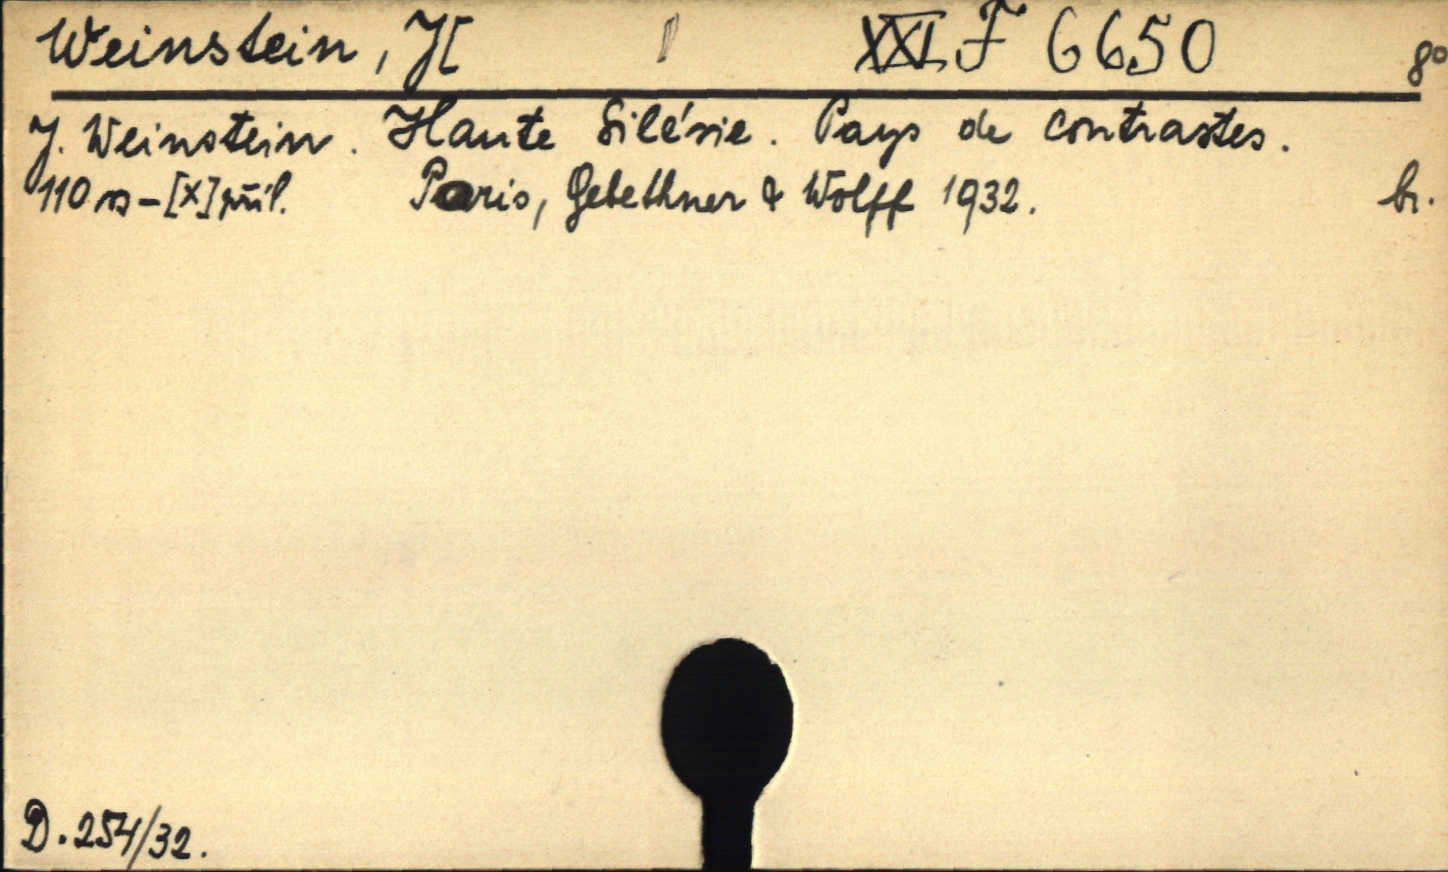 Weinstein, J[ XXI F 6650 8°
J. Weinstein. Haute Silésie. Pays de contrastes.
110 s – [X] příl. Paris, Gebethner & Wolff 1932. br.
D. 254/32.